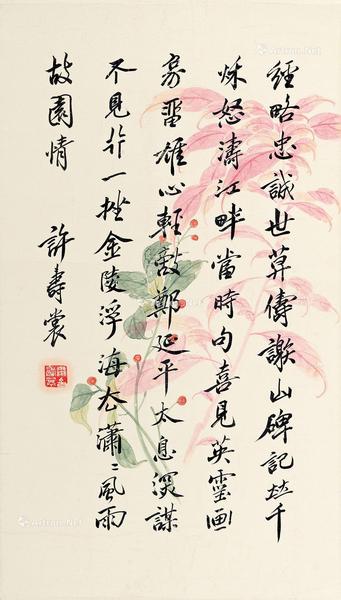 經略忠誠世莫儔謝山碑記千
秌怒濤江畔當時句喜見英靈画
象畱雄心輕敵鄭延平太息深謀
不見行一挫金陵浮海厺瀟〻風雨
故園情
許壽裳